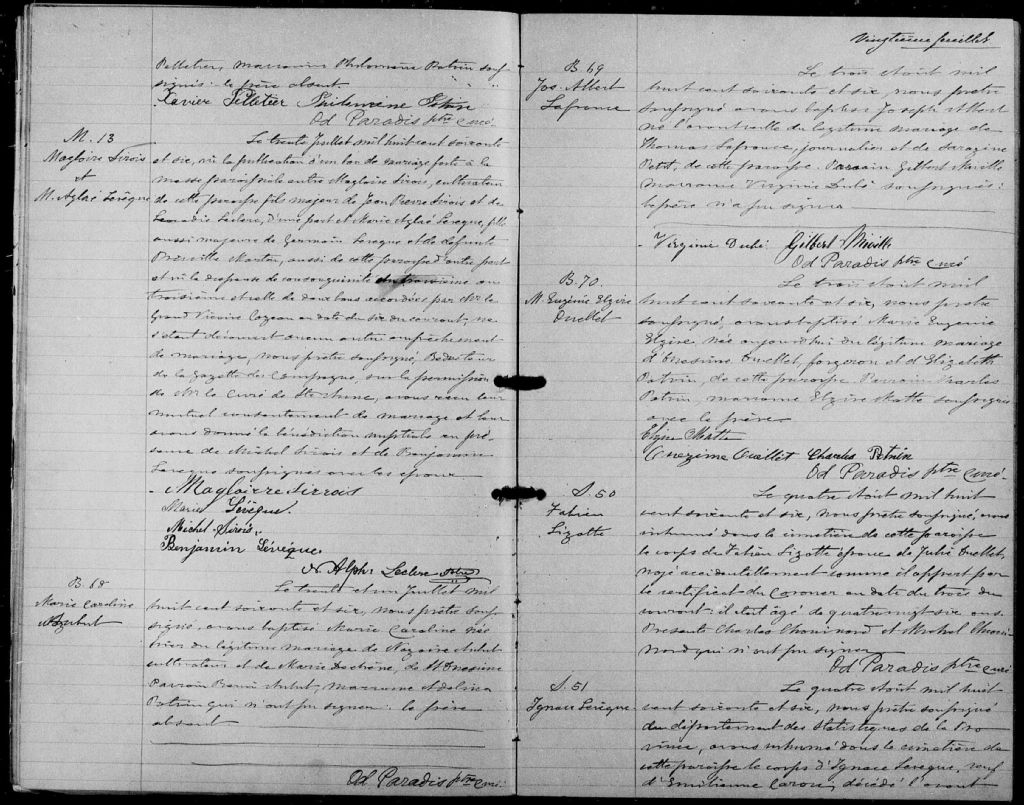 Pelletier, Marraine Philomène Potvin sous-
signés le père absent.
Xavier Pelletier Philomène Potvin
Od Paradis ptre Curé
M. 13
Magloire Sirois
et
M. Aglaé Levêque
Le trente Juillet mil huit cent soixante
et six, vu la publication d'un ban de mariage faite à la
messe paroissiale entre Magloire Sirois, cultivateur
de cette paroisse fils majeur de Jean Pierre Sirois et de
Leocadie Leclerc, d'une part et Marie Aglaé Leveque, fille
aussi majeure de Germain Leveque et de défunte
Martin, aussi de cette paroisse d'autre part
et vu la dispense de consanguinité du troisième au
troisième et celle de deux bans accordées par Mr le
Grand Vicaire Cazeau en date du six du courant, ne
s'étant découvert aucun autre empêchement
de mariage, nous prêtre soussigné, Rédacteur
de la Gazette des Campagnes, sur la permission
de Mr le Curé de avons reçu leur
mutuel consentement de mariage et leur
avons donné la bénédiction nuptiale en pré-
sence de Michel Sirois et de Benjamin
Leveque soussignés avec les époux
Magloire Sirrois
Marie Lévêque.
Michel Sirois.
Benjamin Lévéque.
N. Alph. Leclerc Ptre
B. 68
Marie Caroline
Aubut
Le trente et un Juillet mil
huit cent soixante et six, nous prêtre sous-
signé, avons baptisé Marie Caroline née
hier du légitime mariage de Nazaire Aubut
cultivateur et de Marie Dechêne, de St Onesime
Parrain Aubut, marraine
Potvin qui n'ont pu signer: le père
absent
Od Paradis ptre Curé.
Vingtième feuillet
B. 69
Jos. Albert
Lafrance
Le trois Août mil
huit cent soixante et six, nous prêtre
soussigné avons baptisé Joseph Albert
né l'avant veille du légitime mariage de
Thomas Lafrance, journalier et de Sarazine
Petit, de cette paroisse. Parrain Gilbert Miville
marraine Virginie Dubé soussignés:
le père n'a pu signer
Virginie Dubé Gilbert Miville
Od Paradis ptre Curé
B. 70.
M. Eugénie Elzire
Ouellet
Le trois Août mil
huit cent soixante et six, nous prêtre
soussigné, avons baptisé Marie Eugenie
Elzire, née aujourd'hui du légitime mariage
d'Onesime Ouellet, forgeron et d'Elizabeth
Potvin, de cette paroisse Parrain Charles
Potvin, marraine Elzire Matte soussignés
avec le père
Elzire Matte
Onezime Ouellet Charles Potvin
Od Paradis ptre Curé.
S. 50
Fabien
Lizotte
Le quatre Août mil huit
cent soixante et six, nous prêtre soussigné, avons
inhumé dans le cimetière de cette paroisse
le corps de Fabien Lizotte époux de Julie Ouellet,
noyé accidentellement comme il appert par
le certificat du Coroner en date du trois du
courant: il était âgé de quatre vingt six ans.
Présents Charles Chouinard et Michel Choui-
nard qui n'ont pu signer
Od Paradis ptre curé
S. 51
Ignace Levêque
Le quatre Août mil huit
cent soixante et six, nous prêtre soussigné
du département des Statistiques de la Pro
vince, avons inhumé dans le cimetière de
cette paroisse le corps d'Ignace Leveque, veuf
d'Emilienne Caron, décédé l'avant